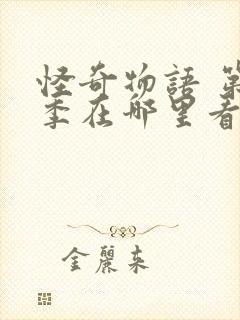 怪奇物語 第
季在哪里看
金麗来